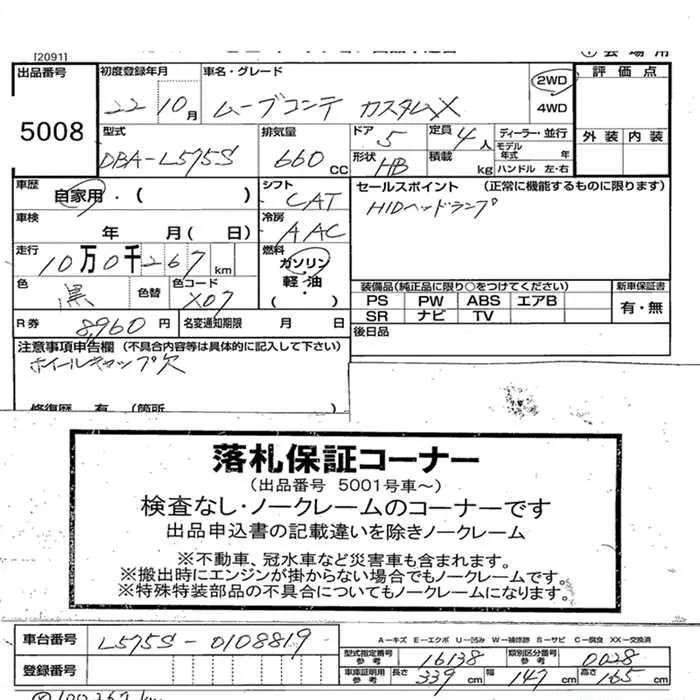 [2091]
出品番号 5008
初度登録年月 22 10月
車名・グレード ムーブコンテ カスタムX
2WD
4WD
評価点
外装 内装
型式 DBA-L575S
排気量 660 CC
ドア 5
定員 4人
形状 HB
積載 kg
ディーラー・並行
モデル年式 年
ハンドル 左・右
車歴 自家用・( )
シフト CAT
セールスポイント (正常に機能するものに限ります)
HIDヘッドランプ
車検 年 月( 日)
冷房 AAC
走行 10万0千267km
燃料 ガソリン・軽・油・( )
色 黒 色替
色コード X07
装備品(純正品に限り○をつけてください)
新車保証書
PS PW ABS エアB
有・無
SR ナビ TV
R券 8,960円
名変通知期限 月 日
後日品
注意事項申告欄 (不具合内容等は具体的に記入して下さい)
ホイールキャップ欠
修復歴 有 (箇所 )
落札保証コーナー
(出品番号 5001号車~)
検査なし・ノークレームのコーナーです
出品申込書の記載違いを除きノークレーム
※不動車、冠水車など災害車も含まれます。
※搬出時にエンジンが掛からない場合でもノークレームです。
※特殊特装部品の不具合についてもノークレームになります。
車台番号 L575S-0108819
A-キズ E-エクボ U-凹み W-補修跡 S-サビ C-腐食 XX-交換済
型式指定番号参考 16138
類別区分番号参考 0028
登録番号
車庫証明用参考 長さ 339cm 幅 147cm 高さ 165cm